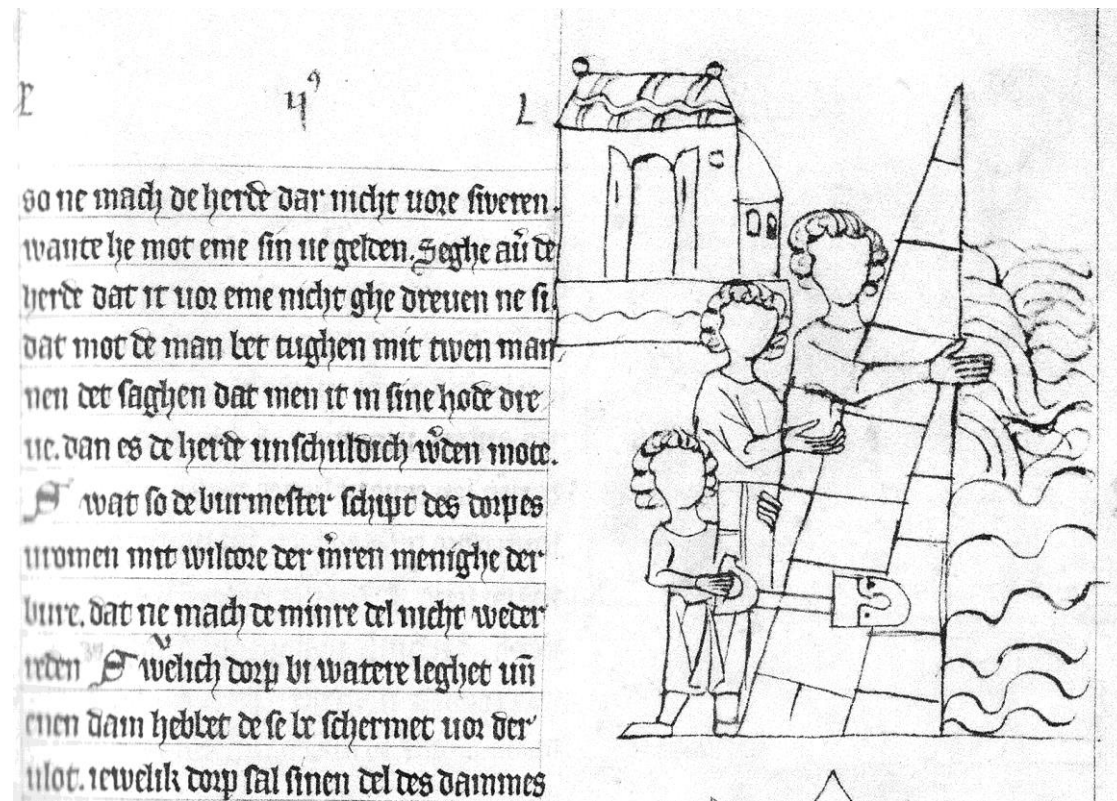 L ij⁹ L
so ne mach de herde dar nicht vore sweren.
wante he mot eme sin ve gelden. Seghe av̄ de
herde dat it vor eme nicht ghe dreven ne si.
dat mot de man bet tughen mit twen man
nen det saghen dat men it in sine hode dre
ve. dan es de herde unschuldich w̄den mote.
Swat so de burmester schipt des dorpes
vromen mit wilcore der m̄ren menighe der
bure. dat ne mach de minre del nicht weder
reden Swelich dorp bi watere leghet un̄
enen dam hebbet de se be schermet vor der
vlot. iewelik dorp sal sinen del des dammes